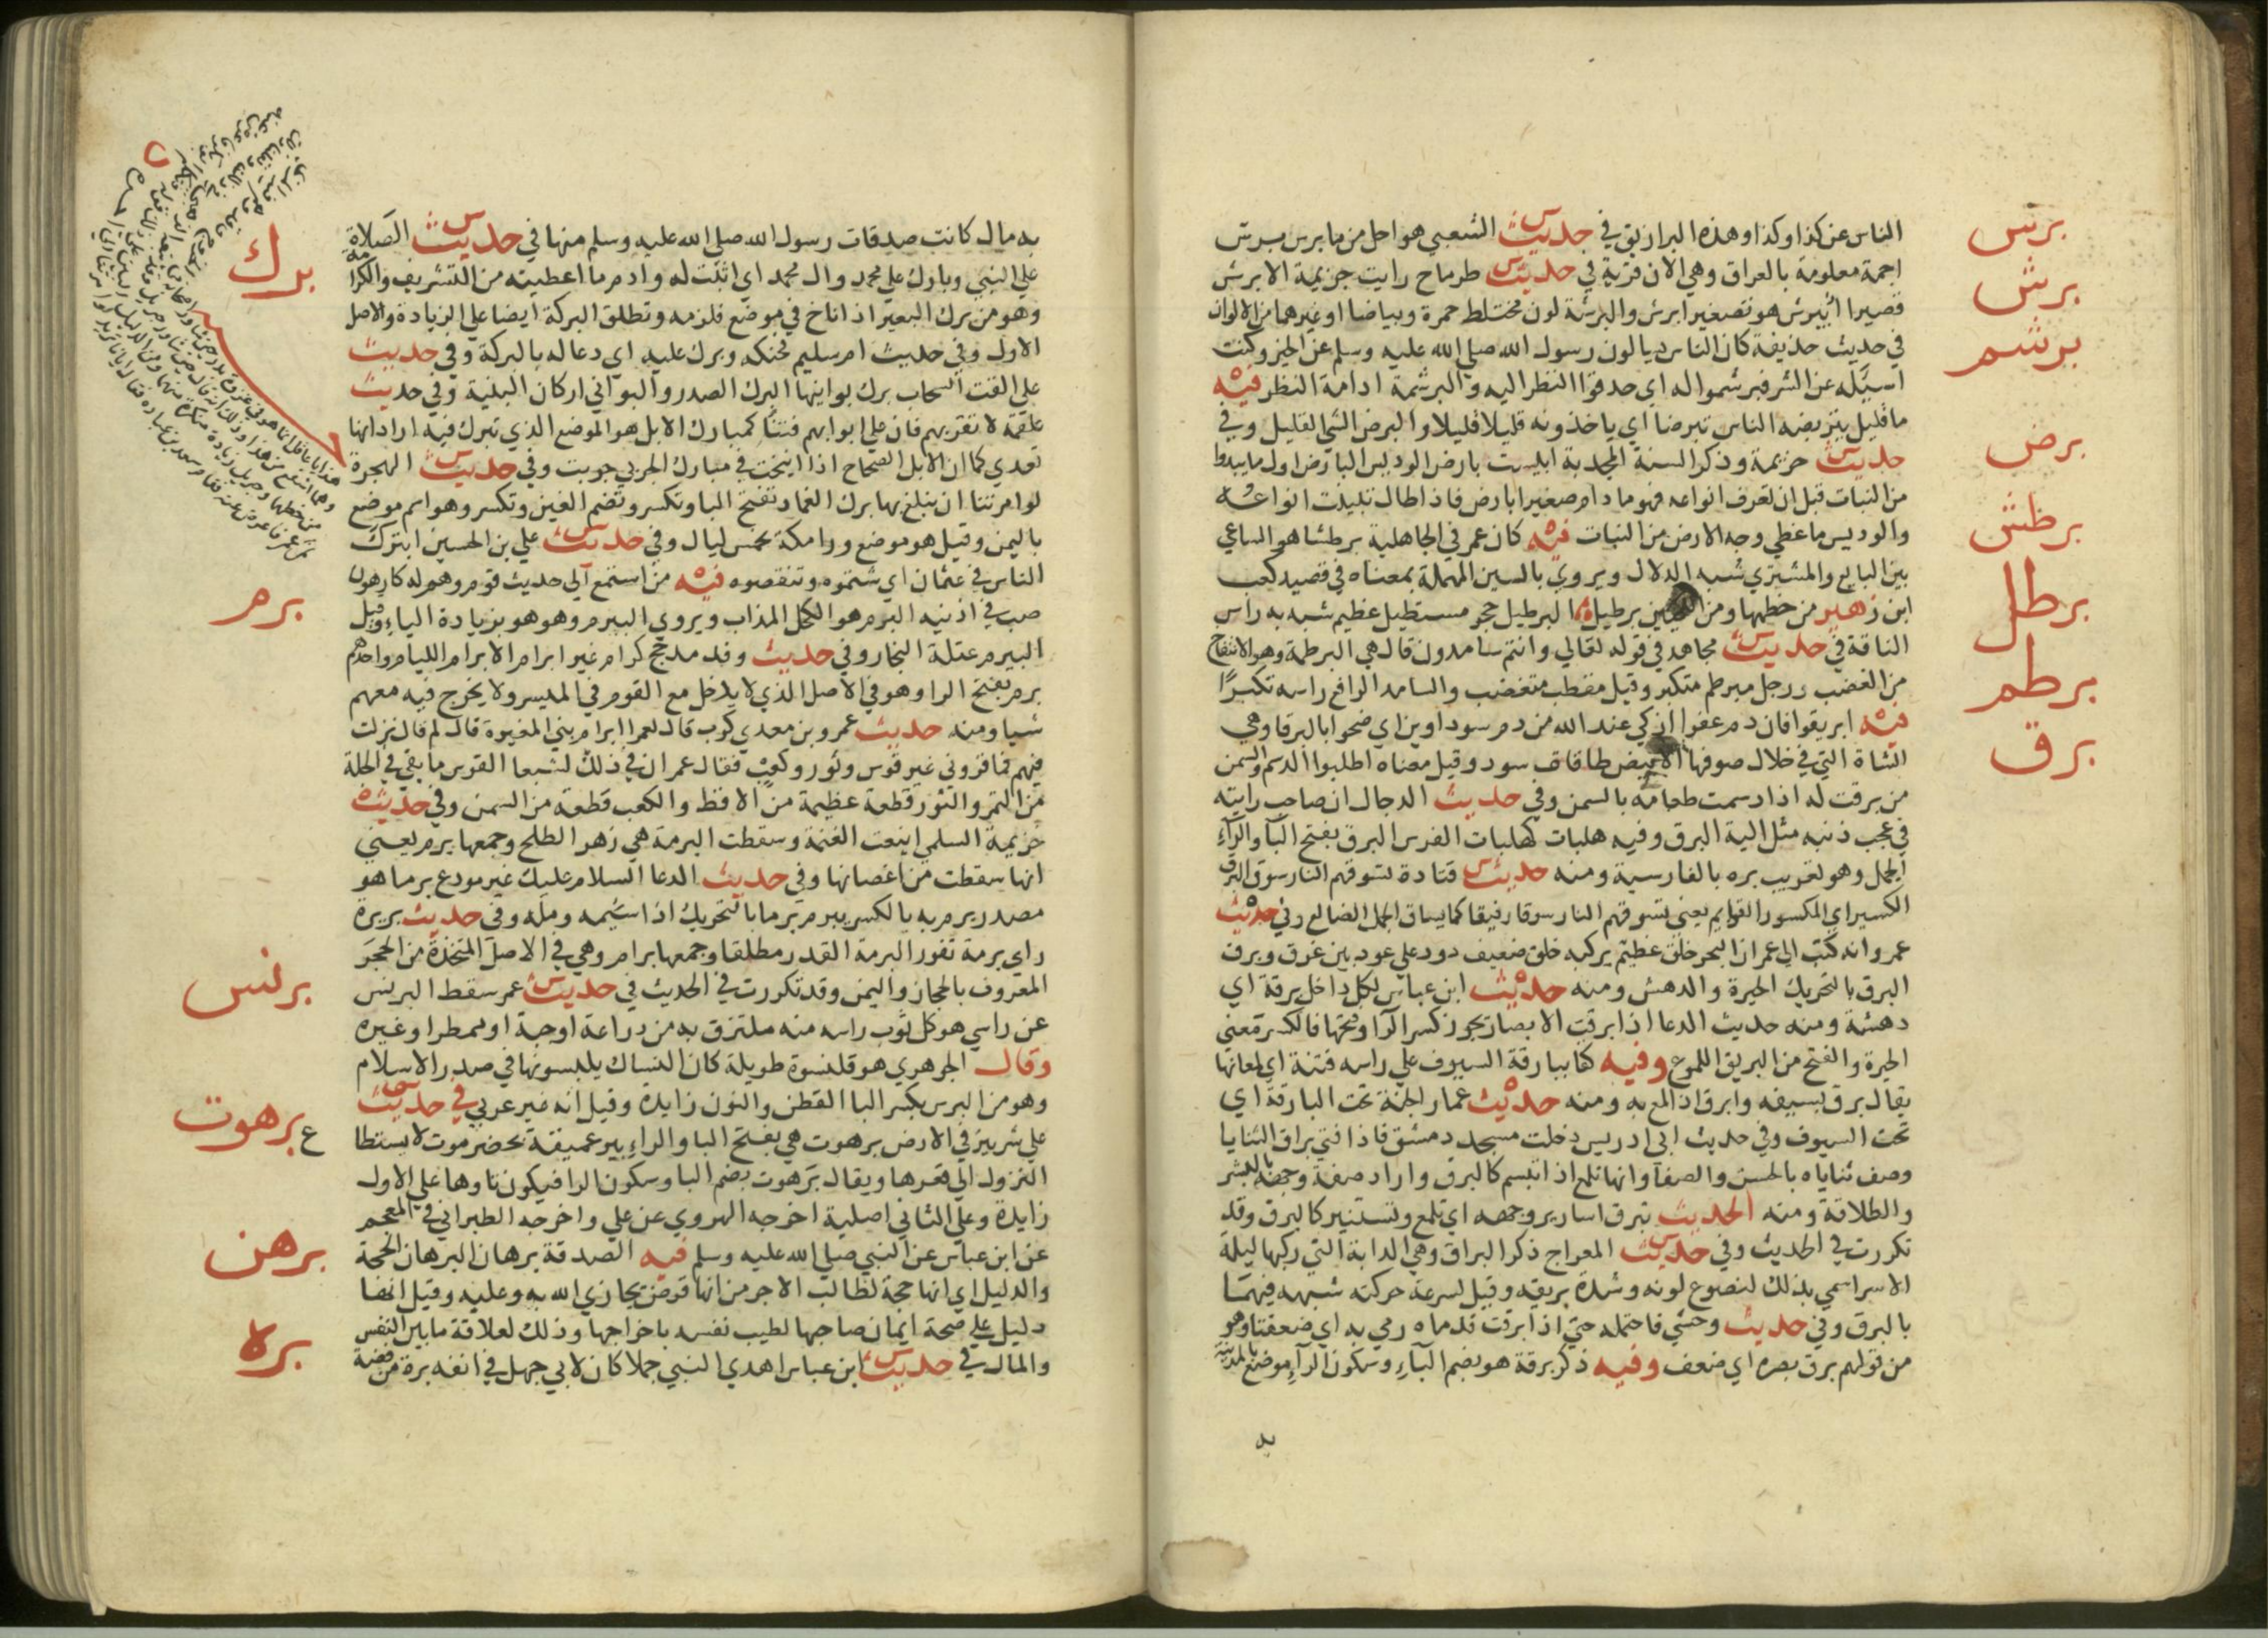 برس
برش
برشم
برض
برطش
برطل
برطم
برق
الناس عن كذا وكذا وهذه البرازيق في حديث الشعبي هو احل من ما برس برس
اجمة معلومة بالعراق وهي الان قرية في حديث طرماح رايت جزيمة الابرش
قصيرا ابيرش هو تصغير ابرش والبرشة لون مختلط حمرة وبياضا او غيرهما من الالوان
في حديث حذيفة كان الناس يسالون رسول الله صلي الله عليه وسلم عن الخير وكنت
اسيله عن الشر فبرشموا له اي حدقوا النظر اليه والبرشمة ادامة النظر فيه
ما قليل يتبرضه الناس تبرضا اي ياخذونه قليلا قليلا والبرض الشي القليل وفي
حديث خزيمة وذكر السنة المجدبة ايبست بارض الوديس البارض اول ما يبدوا
من النبات قبل ان تعرف انواعه فهو ما دام صغيرا بارض فاذا طال تبينت انواعه
والوديس ما غطي وجه الارض من النبات فيه كان عمر في الجاهلية برطشا هو الساعي
بين البايع والمشتري شبه الدلال ويروي بالسين المهملة بمعناه في قصيد كعب
ابن زهير من خطمها ومن اللحيين برطيل البرطيل حجر مستطيل عظيم شبه به راس
الناقة في حديث مجاهد في قوله تعالي وانتم سامدون قال هي البرطمة وهو الانتفاخ
من الغضب ورجل مبرطم متكبر وقيل مقطب متغضب والسامد الرافع راسه تكبرًا
فيه ابرقوا فان دم عفرا ازكي عند الله من دم سوداوين اي ضحوا بالبرقا وهي
الشاة التي في خلال صوفها الابيض طاقات سود وقيل معناه اطلبوا الدسم والسمن
من برقت له اذا دسمت طعامه بالسمن وفي حديث الدجال ان صاحب رايته
في عجب ذنبه مثل الية البرق وفيه هلبات كهلبات الفرس البرق بفتح البآ والرآء
الحمل وهو تعريب بره بالفارسية ومنه حديث قتادة تسوقهم النار سوق البرق
الكسير اي المكسور القوايم يعني تسوقهم النار سوقا رفيقا كما يساق الحمل الضالع وفي حديث
عمرو انه كتب الي عمر ان البحر خلق عظيم يركبه خلق ضعيف دود علي عود بين غرق وبرق
البرق بالتحريك الحيرة والدهش ومنه حديث ابن عباس لكل داخل برقة اي
دهشة ومنه حديث الدعا اذا برقت الابصار يجوز كسر الرا وفتحها فالكسر بمعني
الحيرة والفتح من البريق اللموع وفيه كفا ببارقة السيوف علي راسه فتنة اي لمعانها
يقال برق بسيفه وابرق اذا لمع به ومنه حديث عمار الجنة تحت البارقة اي
تحت السيوف وفي حديث ابي ادريس دخلت مسجد دمشق فاذا فتي براق الثنايا
وصف ثناياه بالحسن والصفآ وانها تلمع اذا تبسم كالبرق واراد صفة وجهه بالبشر
والطلاقة ومنه الحديث تبرق اسارير وجهه اي تلمع وتستنير كالبرق وقد
تكررت في الحديث وفي حديث المعراج ذكر البراق وهي الدابة التي ركبها ليلة
الاسرا سمي بذلك لنصوع لونه وشدة بريقه وقيل لسرعة حركته شبهه فيهما
بالبرق وفي حديث وحشي فاحتمله حتي اذا برقت قدماه رمي به اي ضعفتا وهو
من قولهم برق بصره اي ضعف وفيه ذكر برقة هو بضم البآء وسكون الرآء موضع بالمدينة
به
برك
برم
برنس
برهوت
ع
برهن
بره
به مال كانت صدقات رسول الله صلي الله عليه وسلم منها في حديث الصلاة
علي النبي وبارك علي محمد وال محمد اي اثبت له وادم ما اعطيته من التشريف والكرامة
وهو من برك البعير اذا اناخ في موضع فلزمه وتطلق البركة ايضا علي الزيادة والاصل
الاول وفي حديث ام سليم فحنكه وبرك عليه اي دعا له بالبركة وفي حديث
علي القت السحاب برك بوانيها البرك الصدر والبواني اركان البنية وفي حديث
علقمة لا تقربهم فان علي ابوابهم فتنا كمبارك الابل هو الموضع الذي تبرك فيه اراد انها
تعدي كما ان الابل الصحاح اذا انيخت في مبارك الجربي جربت وفي حديث الهجرة
لو امرتنا ان نبلغ بها برك الغماد تفتح البا وتكسر وتضم الغين وتكسر وهو اسم موضع
باليمن وقيل هو موضع ورا مكة بخمس ليال وفي حديث علي بن الحسين ابترك
الناس في عثمان اي شتموه وتنقصوه فيه من استمع الي حديث قوم وهم له كارهون
صب في اذنيه البرم هو الكحل المذاب ويروي البيرم وهو هو بزيادة الياء وقيل
البيرم عتلة النجار وفي حديث وفد مذحج كرام غير ابرام الابرام الليام واحدهم
برم بفتح الرا وهو في الاصل الذي لا يدخل مع القوم في الميسر ولا يخرج فيه معهم
شيا ومنه حديث عمرو بن معدي كرب قال لعمر ا ابرام بني المغيرة قال لم قال نزلت
فيهم فما قروني غير قوس وثور وكعب فقال عمر ان في ذلك لشبعا القوس ما بقي في الجلة
من التمر والثور قطعة عظيمة من الاقط والكعب قطعة من السمن وفي حديث
خزيمة السلمي اينعت العنمة وسقطت البرمة هي زهر الطلح وجمعها برم يعني
انها سقطت من اغصانها وفي حديث الدعا السلام عليك غير مودع برما هو
مصدر برم به بالكسر يبرم برما بالتحريك اذا سيمه ومله وفي حديث بريرة
راي برمة تفور البرمة القدر مطلقا وجمعها برام وهي في الاصل المتخذة من الحجر
المعروف بالحجاز واليمن وقد تكررت في الحديث في حديث عمر سقط البرنس
عن راسي هو كل ثوب راسه منه ملتزق به من دراعة او جبة او ممطر او غيره
وقال الجوهري هو قلنسوة طويلة كان النساك يلبسونها في صدر الاسلام
وهو من البرس بكسر البا القطن والنون زايدة وقيل انه غير عربي في حديث
علي شر بير في الارض برهوت هي بفتح البا والراء بير عميقة بحضرموت لا يستطاع
النزول الي قعرها ويقال بُرهوت بضم البا وسكون الرا فيكون تاوها علي الاول
زايدة وعلي الثاني اصلية اخرجه الهروي عن علي واخرجه الطبراني في المعجم
عن ابن عباس عن النبي صلي الله عليه وسلم فيه الصدقة برهان البرهان الحجة
والدليل اي انها حجة لطالب الاجر من انها قرض يجازي الله به وعليه وقيل انها
دليل علي صحة ايمان صاحبها لطيب نفسه باخراجها وذلك لعلاقة ما بين النفس
والمال في حديث ابن عباس اهدي النبي جملا كان لابي جهل في انفه برة من فضة